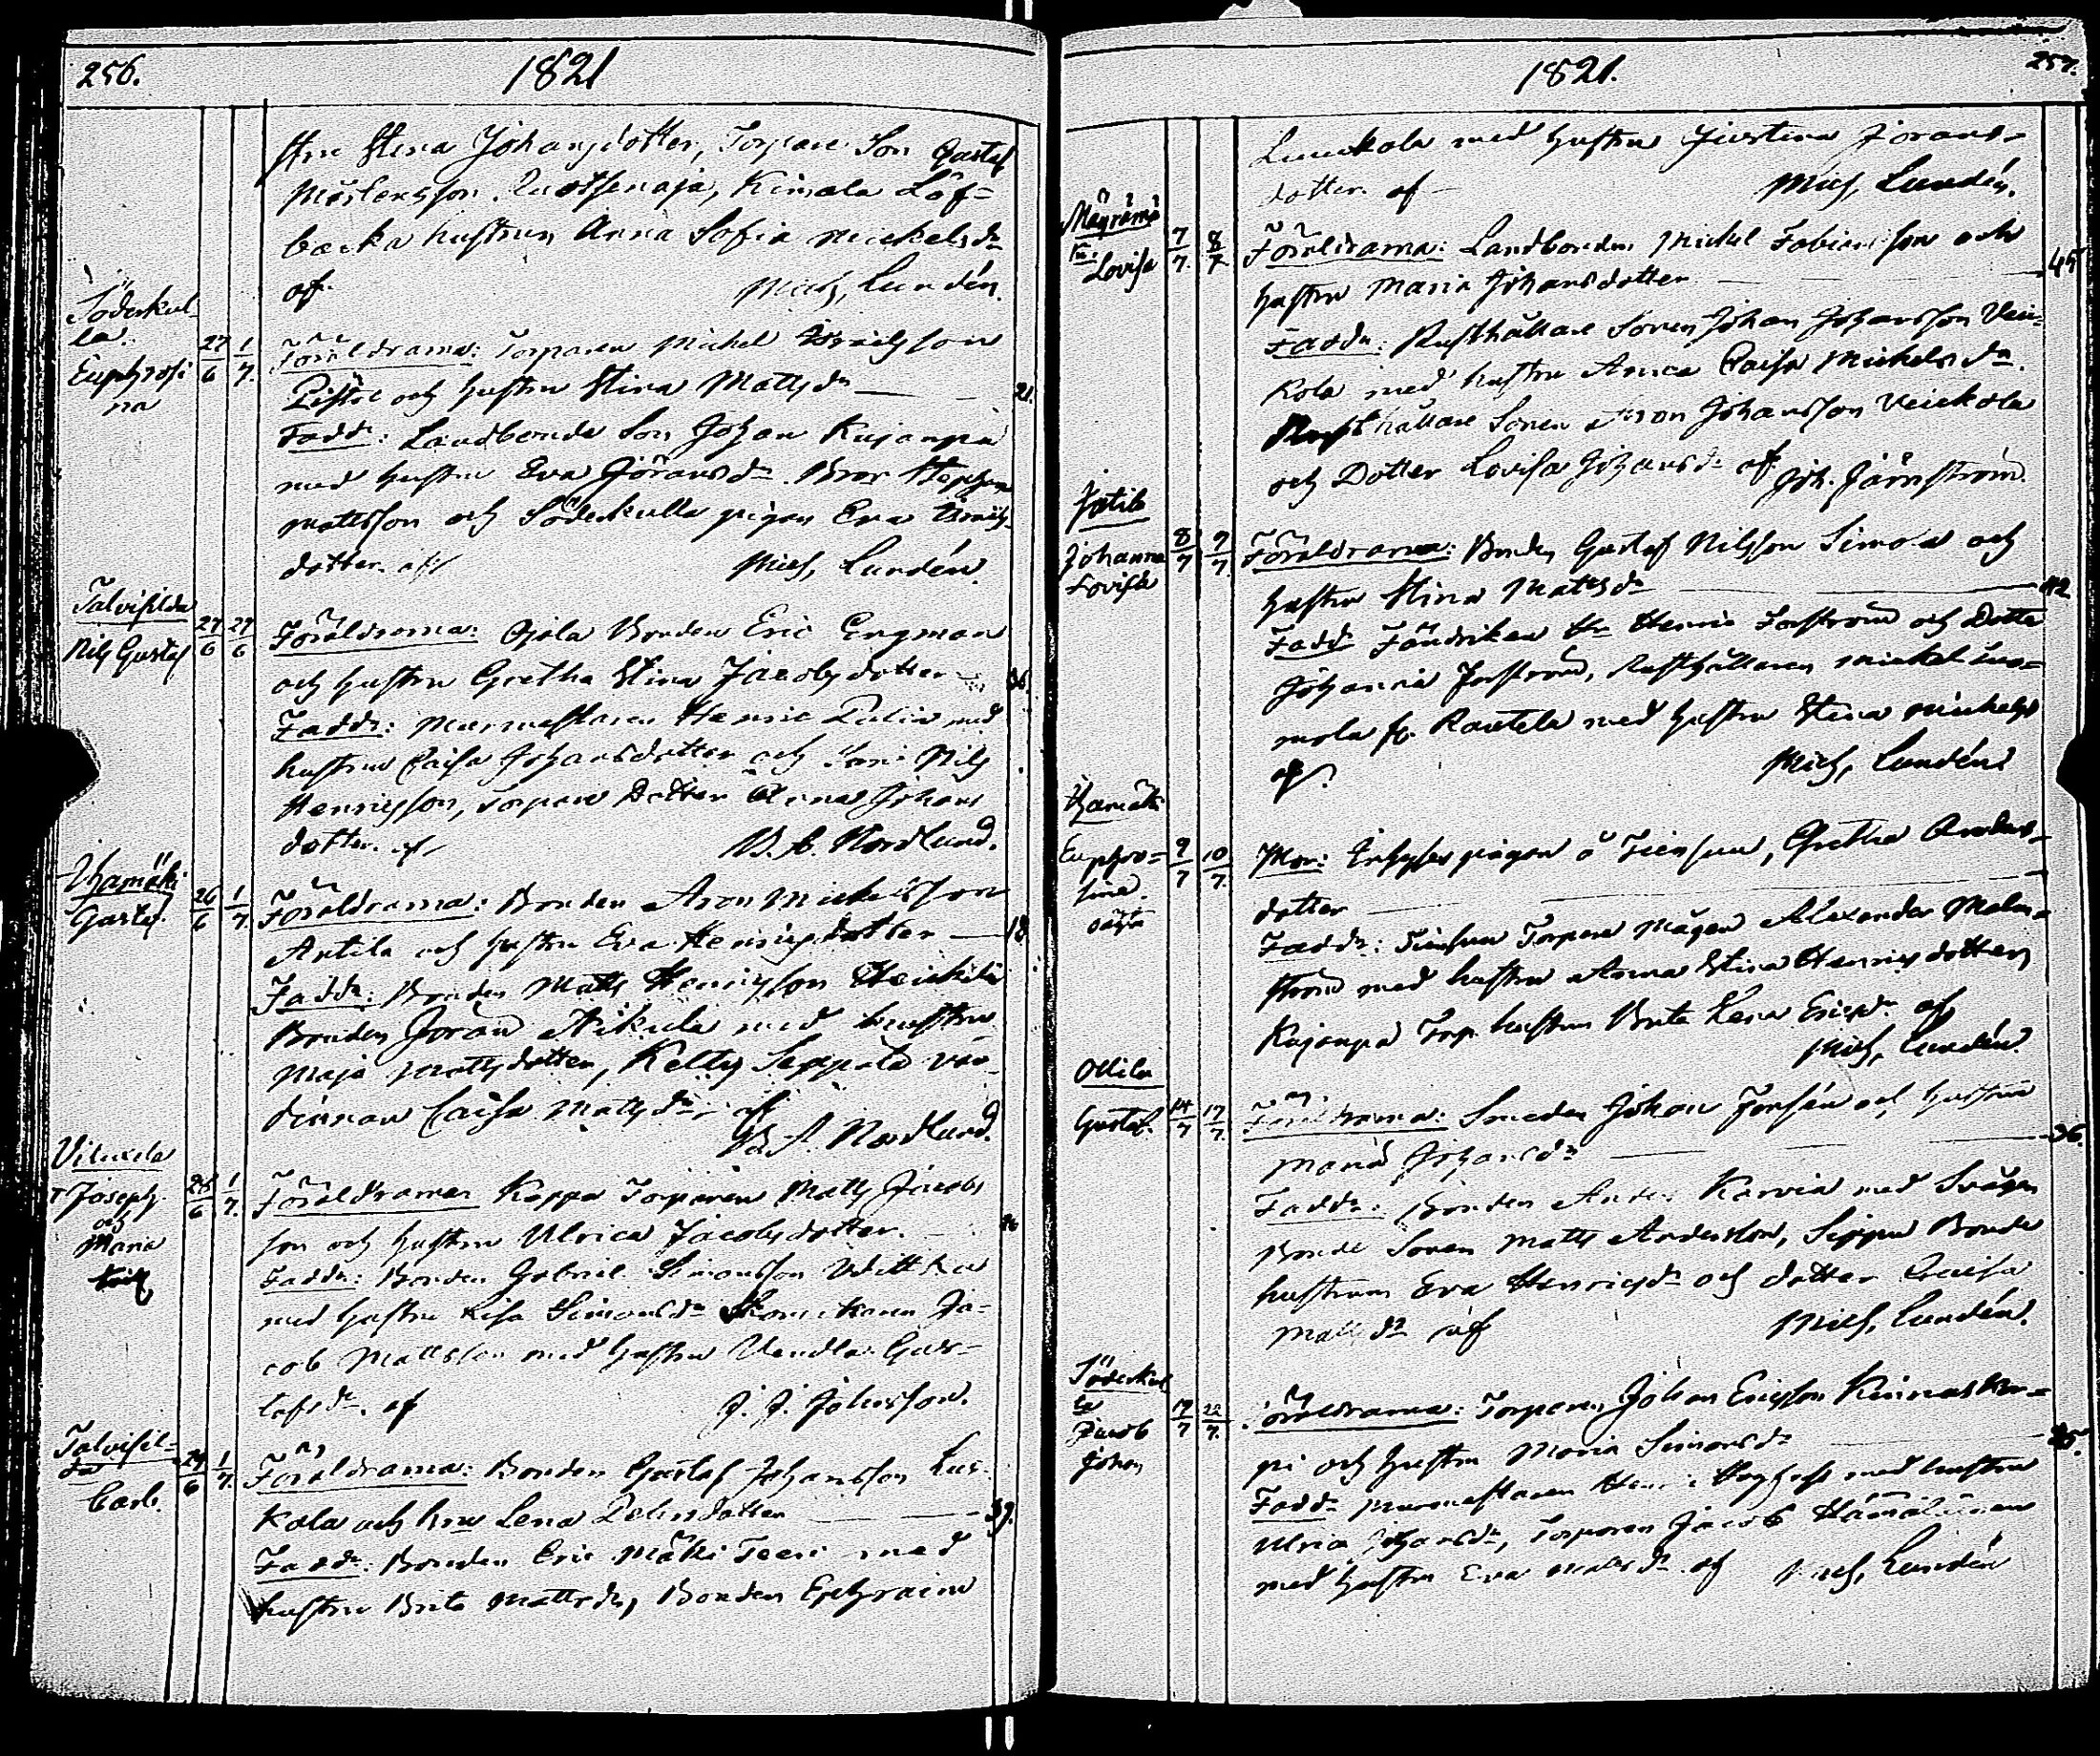 256.
1821
stru Stina Johansdotter, Torpare Son Gustaf
Mårtensson Ruotsenoja, Kimola Löf=
backa hustrun Anna Sofia Mickelsdr
af
Mich, Lundén.
Söderkul-
la.
Euphrosi
na
27/6 1/7.
Föräldrarna: Torparen Michel Israelsson
Pistol och hustru Stina Mattsdr
21.
Faddr: Landbonde Son Johan Kujanpä
med hustru Eva Göransdr. Bror Stephan
Mattsson och Söderkulla pigan Eva
dotter. af
Mich, Lundén.
Talvisilda
Nils Gustaf
27/6 29/6
Föräldrarna: Ojala Bonden Eric Engman
och hustru Gretha Stina Jacobsdotter
36.
Faddr: Murmestaren Henric Palin med
hustru Caisa Johansdotter och Son Nils
Henricsson, Torpare Dotter Anna Johans
dotter. af
B. A. Nordlund.
Uhamäki
Gustaf.
26/6 1/7.
Föräldrarna: Bonden Aron Mickelsson
Antila och hustru Eva Henricsdotter
18.
Faddr: Bonden Matts Henricsson Heickilä
Bonden Jöran Nikula med hustru
Maja Mattsdotter, Seppälä vär-
dinnan Caisa Mattsdr af
B. A. Nordlund.
Viluxela
Joseph
och
Maria
28/6 1/7.
Föräldrarna Torparen Matts Jacobs
son och hustru Ulrica Jacobsdotter.
26
Faddr: Bonden Gabriel Simonsson
med hustru Lisa Simonsdr Ja-
cob Mattsson med hustru Vendla Gus-
tafsdr. af
J. J. Johnsson.
Talvisil=
da
Carl.
29/6 1/7.
Föräldrarna: Bonden Gustaf Johansson Lus-
kola och hru Lena
39.
Faddr: Bonden Eric Mäki Teeri med
hustru Brita Mattsdr, Bonden Ephraim
1821.
257.
Luuskola med hustru Justina Jörans-
dotter. af
Mich, Lundén.
Mäyrämä
Lovisa
7/7. 8/7.
Föräldrarna: Landbonden Mickel Fabiansson och
hustru Maria Johansdotter
45
Faddr: Rusthållare Sonen Johan Johansson Vei-
kola med hustru Anna Caisa Mickelsdr.
Rusthållare Sonen Aron Johansson Veickola
och Dotter Lovisa Johansdr. af
Joh. Järnström.
Jotila
Johanna
Lovisa
8/7 9/7.
Föräldrarna: Bonden Gustaf Nilsson Simola och
hustru Stina Mattsdr
42
Faddr Fändriken Hr Henric Forström och Dotter
Johanna Forström, Rusthållaren Mickel Luo=
mola fr. Rautela med hustru Stina Mickelsdr
af.
Mich, Lundén
Uhamäki
Euphro=
sine
oäkta
9/7 10/7.
Mor: Inhyses pigan å Tiensuu, Gretha Anders-
dotter
Faddr: Tiensuu Torpare Mågen Alexander Malm-
ström med hustru Anna Stina Henricsdotter,
Kujanpä Torp hustrun Brita Lena Ericsdr af
Mich, Lundén.
Ollila
Gustaf.
14/7 17/7.
Föräldrarna: Smeden Johan Forsén och hustru
Maria Johansdr
36.
Faddr: Bonden Anders Karvia med Svägern
Bonde Sonen Matts Andersson, Seppä Bonde
hustrun Eva Henricsdr och dotter Caisa
Mattsdr af
Mich, Lundén.
Söderkul
la
Jacob
Johan
19/7 22/7.
Föräldrarna: Torparen Johan Ericsson
pi och hustru Maria Simonsdr
35.
Faddr Murmestaren Henric med hustru
Ulrica Johansdr, Torparen Jacob Hämäläinen
med hustru Eva Mattsdr. af
Mich, Lundén